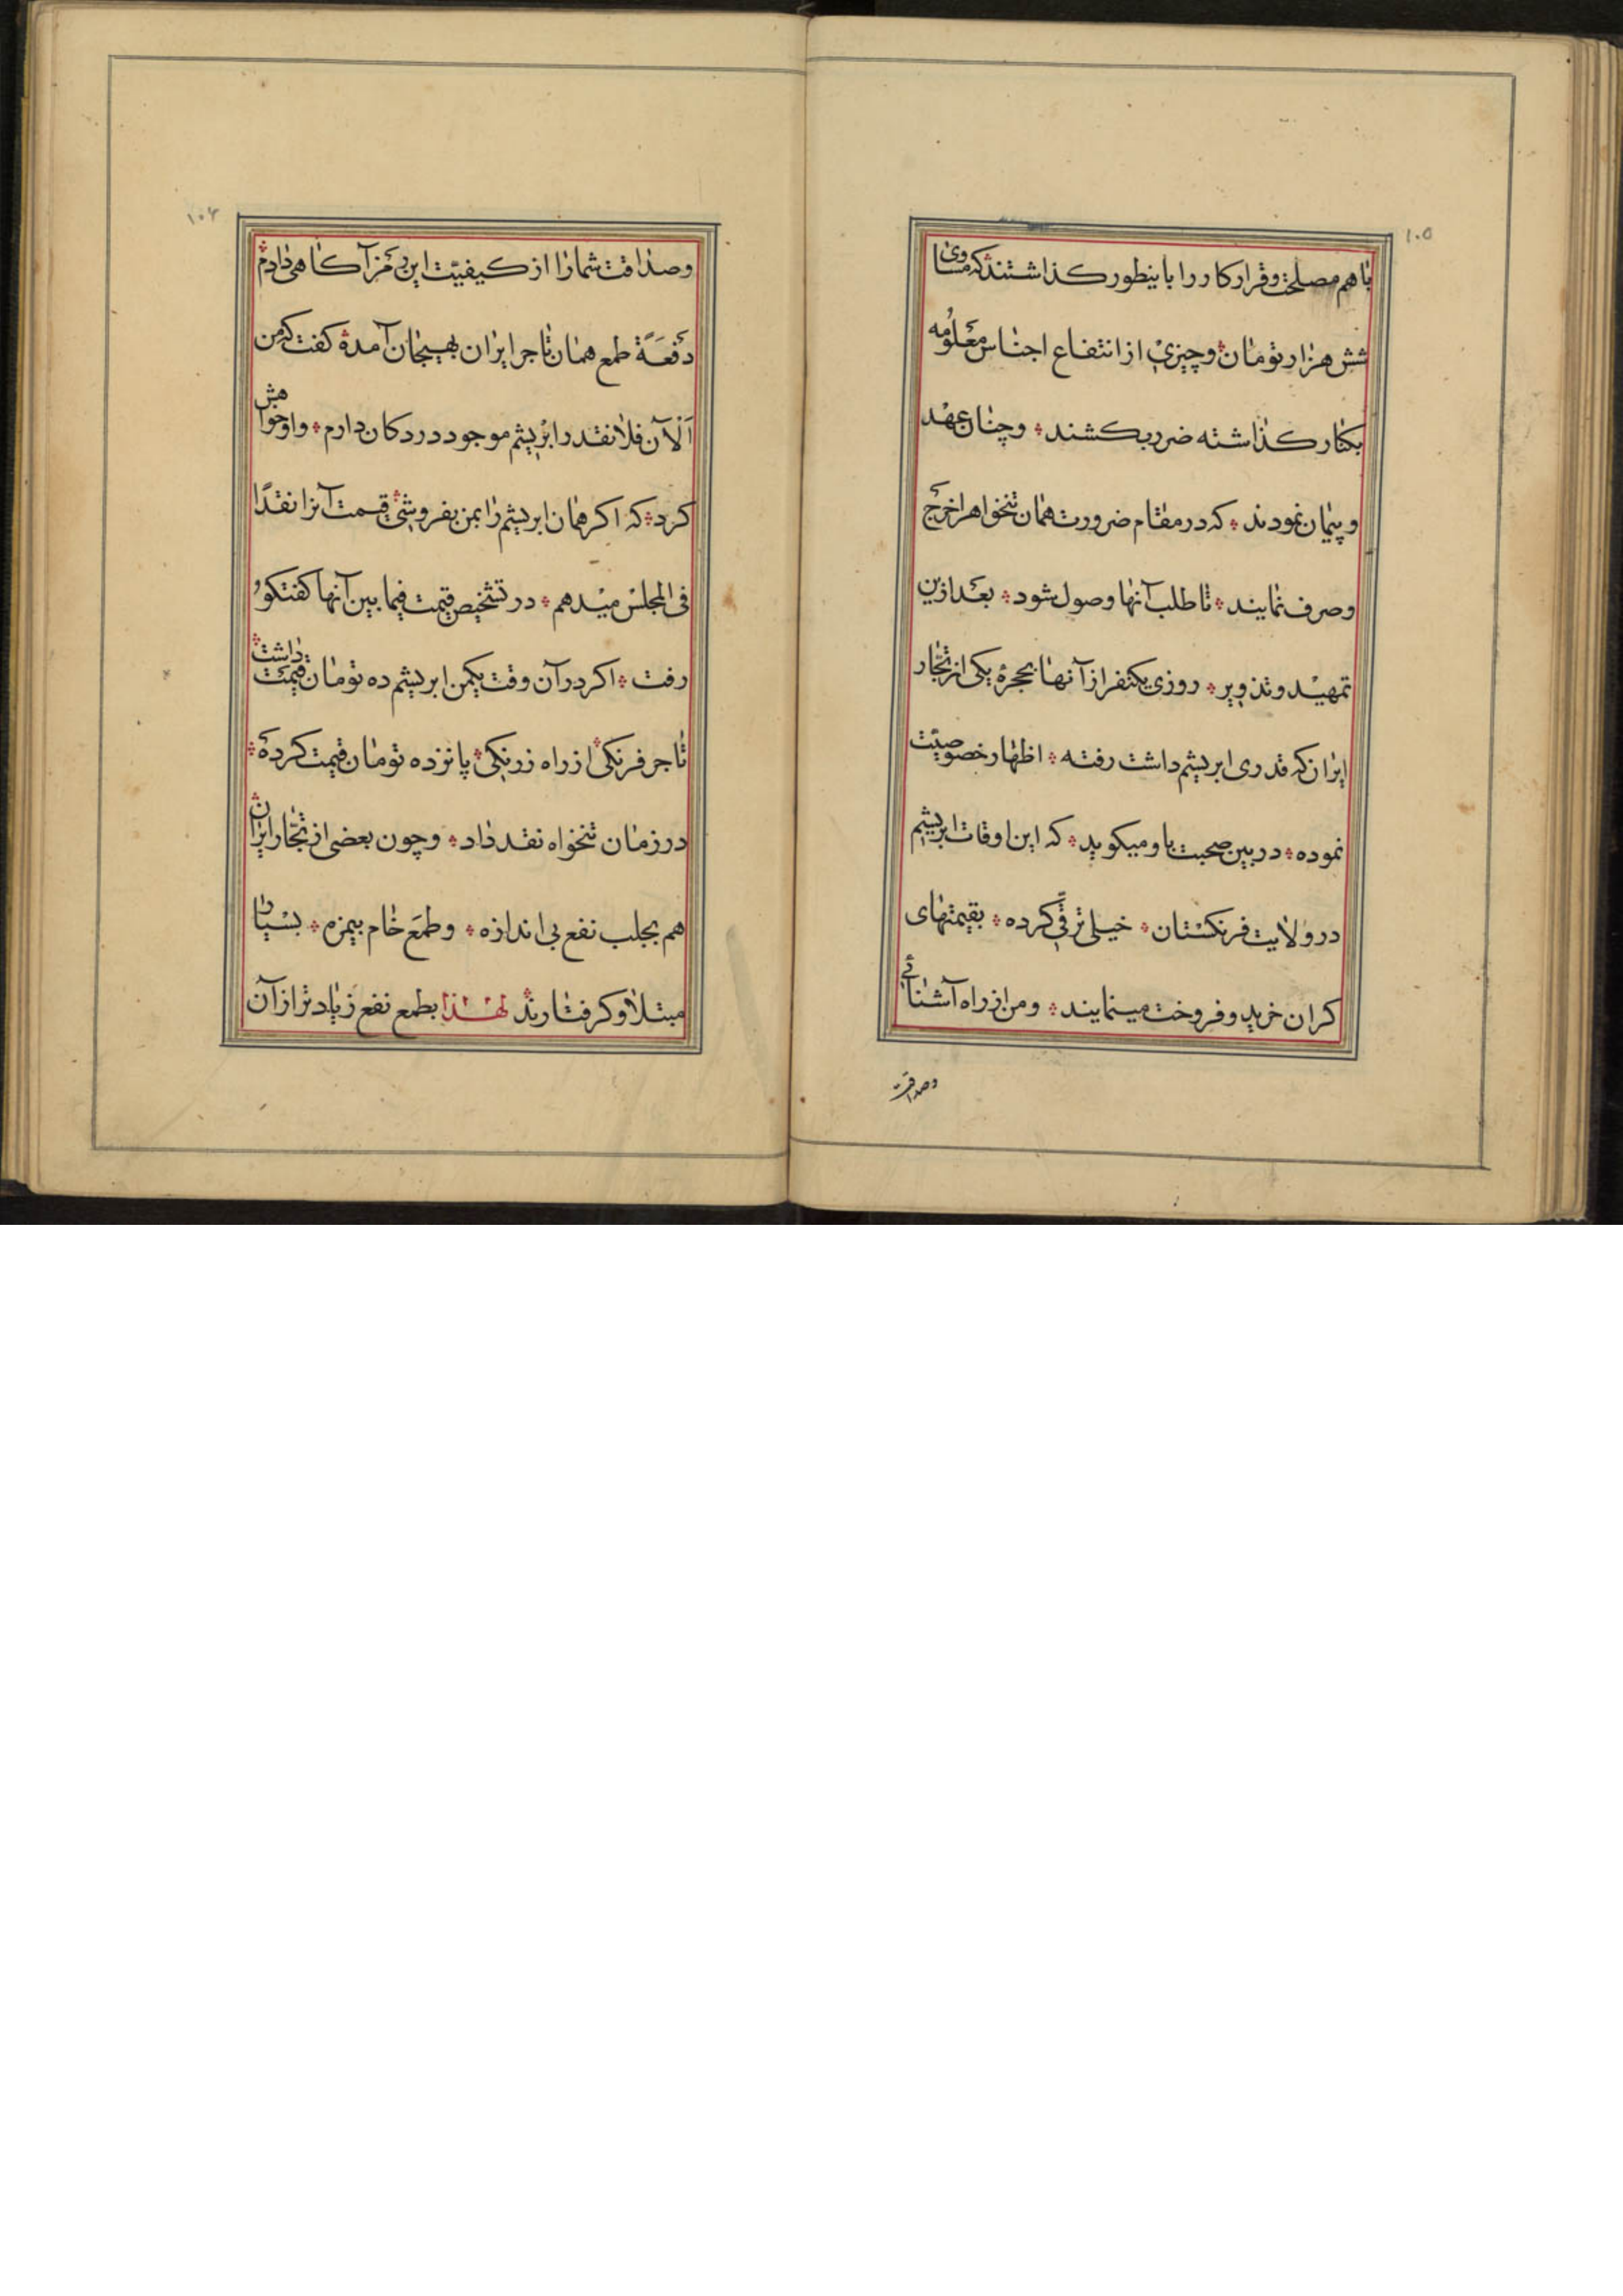 ۱۰۵
باهم مصلحت و قرار کار را باینطور کذاشتند که مساوی
شش هزار تومان و چیزی از انتفاع اجناس معلومه
بکنار کذاشته ضرر بکشند و چنان عهد
و پیمان نمودند که در مقام ضرورت همان تنخواه را خرج
و صرف نمایند تا طلب آنها وصول شود بعد ازین
تمهید و تذویر روزی یکنفر از آنها بحجرهٔ یکی از تجّار
ایران که قدری ابریشم داشت رفته اظهار خصوصیّت
نموده در بین صحبت باو میکوید که این اوقات ابریشم
در ولایت فرنکستان خیلی ترقّی کرده بقیمتهای
کران خرید و فروخت مینمایند و من از راه آشنائی
وصداقت
۱۰۶
و صداقت شما را از کیفیّت این رمز آکاهی دادم
دفعةً طمع همان تاجر ایران بهیجان آمده کفت که من
اَلْآن فلانقدر ابریشم موجود در دکان دارم و او خواهش
کرد که اکر همان ابریشم را بمن بفروشی قیمت آنرا نقدًا
فی المجلس میدهم در تشخیص قیمت فیما بین آنها کفتکو
رفت اکر در آن وقت یکمن ابریشم ده تومان قیمت داشت
تاجر فرنکی از راه زرنکی پانزده تومان قیمت کرده
در زمان تنخواه نقد داد و چون بعضی از تجّار ایران
هم بجلب نفع بی اندازه و طمع خام بیمزه بسیار
مبتلا و کرفتارند لهذا بطمع نفع زیادتر از آن